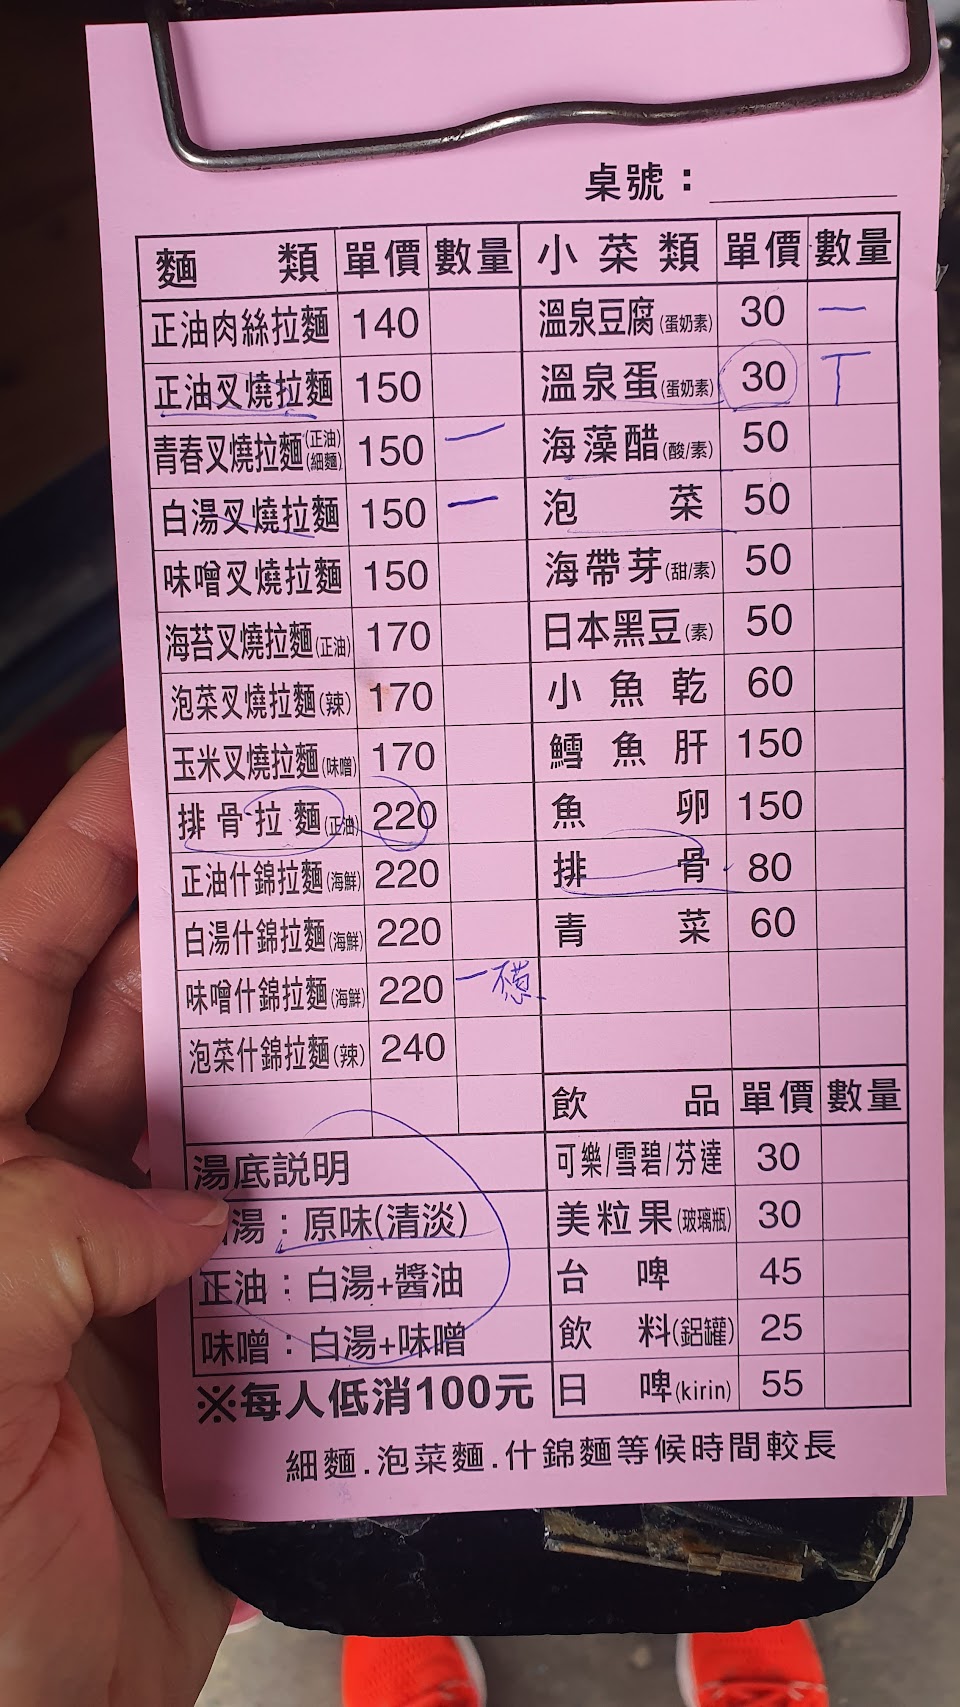 桌號：
麵 類 單價 數量
正油肉絲拉麵 140
正油叉燒拉麵 150
青春叉燒拉麵(正油)(細麵) 150 一
白湯叉燒拉麵 150 一
味噌叉燒拉麵 150
海苔叉燒拉麵(正油) 170
泡菜叉燒拉麵(辣) 170
玉米叉燒拉麵(味噌) 170
排骨拉麵(正油) 220
正油什錦拉麵(海鮮) 220
白湯什錦拉麵(海鮮) 220
味噌什錦拉麵(海鮮) 220 一 不蔥
泡菜什錦拉麵(辣) 240
湯底説明
湯：原味(清淡)
正油：白湯+醬油
味噌：白湯+味噌
※每人低消100元
小菜類 單價 數量
溫泉豆腐(蛋奶素) 30 一
溫泉蛋(蛋奶素) 30 丅
海藻醋(酸/素) 50
泡 菜 50
海帶芽(甜/素) 50
日本黑豆(素) 50
小魚乾 60
鱈魚肝 150
魚 卵 150
排 骨 80
青 菜 60
飲 品 單價 數量
可樂/雪碧/芬達 30
美粒果(玻璃瓶) 30
台 啤 45
飲 料(鋁罐) 25
日 啤(kirin) 55
細麵.泡菜麵.什錦麵等候時間較長